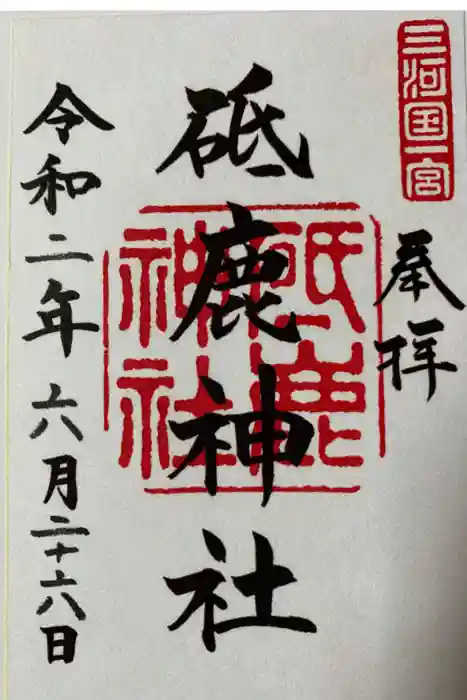 三河国一宮
奉拝
砥鹿神社
砥鹿神社
令和二年六月二十六日